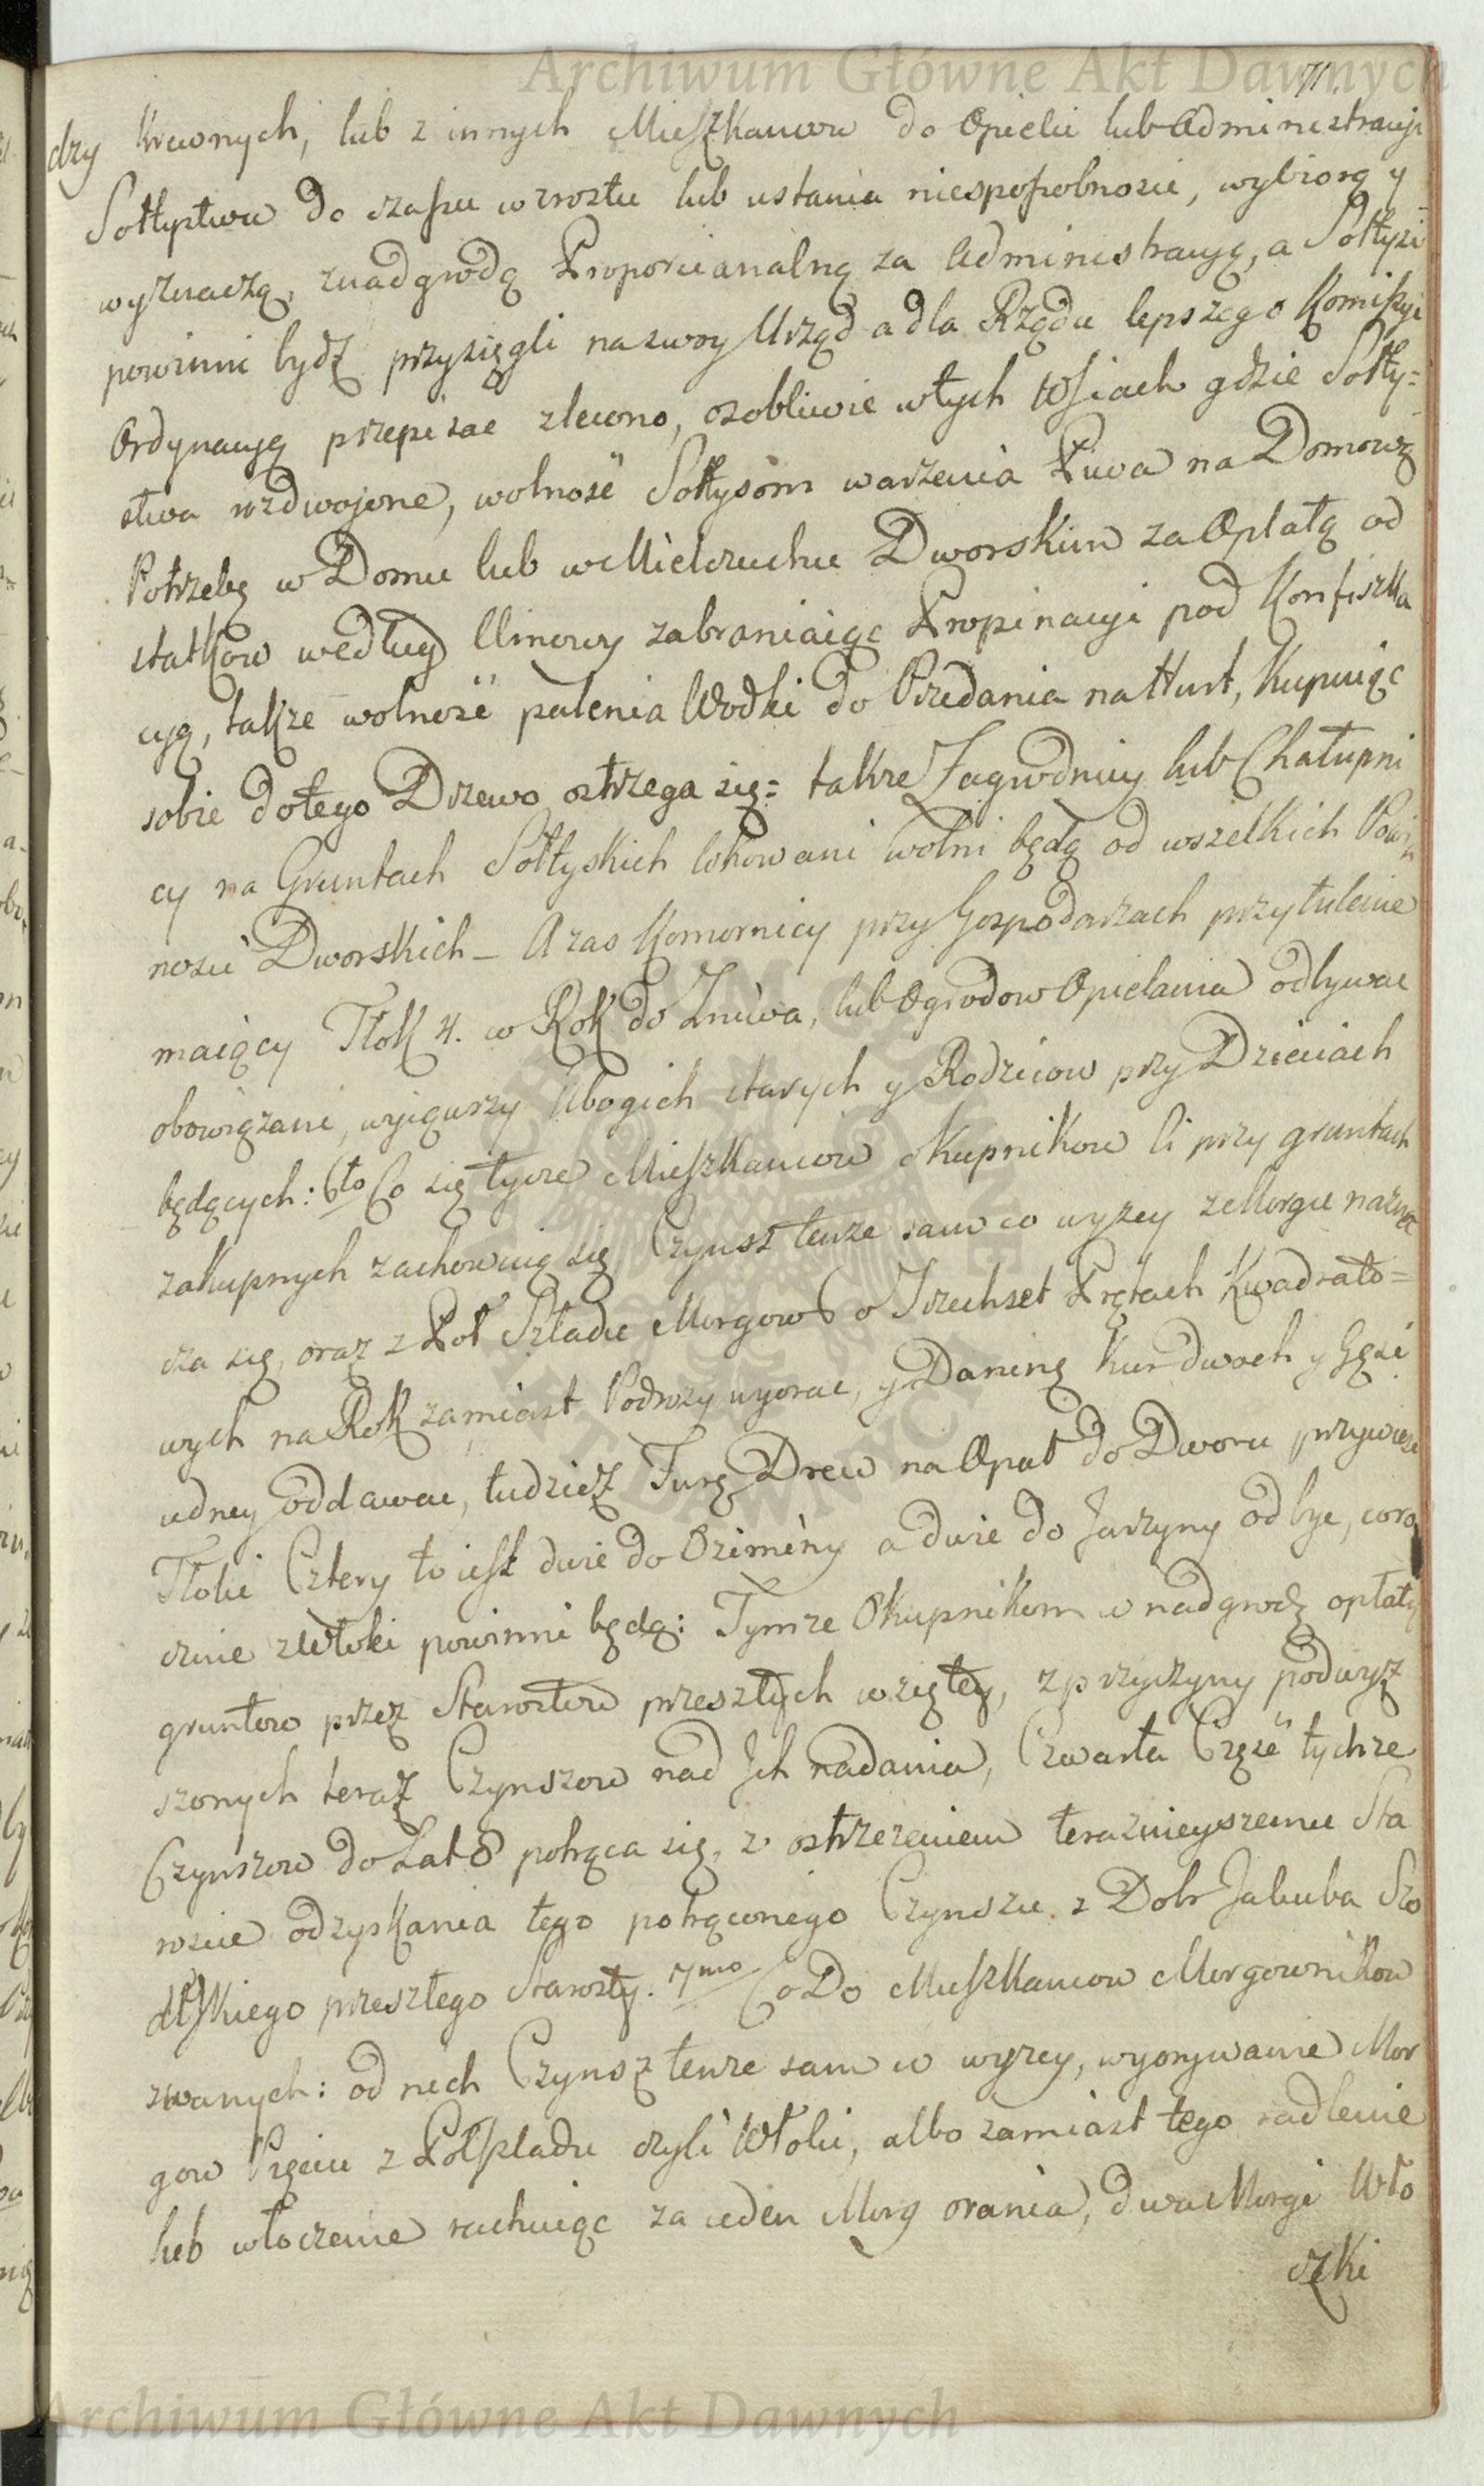 Archiwum Główne Akt Dawnych
71.
dzy Krewnych, lub z innych Mieszkancow do Opieki lub Administracyi
Sołtystwa do czasu wzrostu lub ustania niesposobnosci, wybiorą y
wyznaczą, z nadgrodą Proporcianalną za Administracyą, a Sołtysi
powinni bydź przysięgli na swoy Urząd a dla Rządu lepszego Komissyi
Ordynacyą przepisac zlecono, osobliwie w tych Wsiach gdzie Sołty=
stwa rozdwojone, wolność Sołtysom warzenia Piwa na Domową
Potrzebę w Domu lub w Mielcuchu Dworskim za Opłatą od
statkow według Umowy zabraniaiąc Propinacyi pod Konfiszka
cyą, także wolność palenia Wodki do Przedania na Hurt, Kupuiąc
sobie do tego Drzewo ostrzega się= także Zagrodnicy lub Chałupni
cy na Gruntach Sołtyskich lokowani wolni będą od wszelkich Powin
nosci Dworskich – A zas Komornicy przy Gospodarzach przytulenie
maiący Tłok 4. w Rok do Zniwa, lub Ogrodow Opielania odbywac
obowiązani, wyiąwszy Ubogich starych y Rodzicow przy Dzieciach
będących: 6to Co się tycze Mieszkancow Okupnikow ci przy gruntach
zakupnych zachowuią się, Czynsz tenże sam co wyzey z Morgu naznac
cza się, oraz z Poł Sladu Morgow 6 o Trzechset Prętach Kwadrato=
wych na Rok zamiast Podrozy wyorac, y Daninę Kur dwoch y Gęsi
iedney oddawac, tudzież Furę Drew na Opał do Dworu przywiesc
Tłoki Cztery to iest dwie do Oziminy a dwie do Jarzyny odbyc, coro
cznie z Włoki powinni będą: Tymze Okupnikom w nadgrodę opłaty
gruntow przez Starostow przeszłych wziętey, z przyczyny podwyz
szonych teraz Czynszow nad Ich nadania, Czwarta Część tychze
Czynszow do Lat 8 potrąca się, z ostrzezeniem teraznieyszemu Sta
roscie odzyskania tego potrąconego Czynszu z Dobr Jakuba Szo
dłskiego przeszłego Starosty. 7mo Co Do Mieszkancow Morgownikow
zwanych: od nich Czynsz tenze sam co wyzey, wyorywanie Mor
gow Pięciu z Połsladu czyli Włoki, albo zamiast tego radlenie
lub włoczenie rachuiąc za ieden Morg orania, dwa Morgi Wło
czki
Archiwum Główne Akt Dawnych